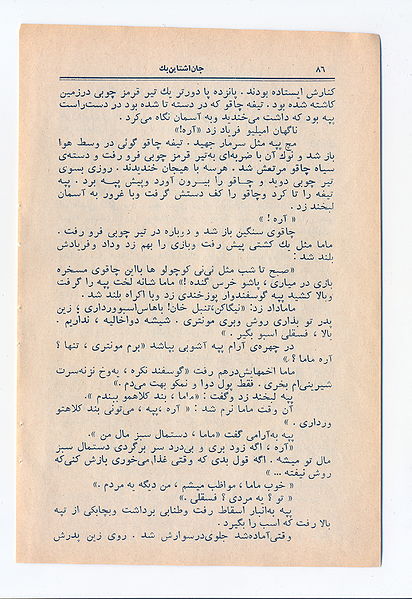 ۸۶
جان اشتاین بك
کنارش ایستاده بودند . پانزده پا دورتر یك تیر قرمز چوبی درزمین
کاشته شده بود . تیغه چاقو که در دسته تا شده بود در دست‌راست
پپه بود که داشت می‌خندید وبه آسمان نگاه می‌کرد .
ناگهان امیلیو فریاد زد «آره!»
مچ پپه مثل سرمار جهید . تیغه چاقو گوئی در وسط هوا
باز شد و نوك آن با ضربه‌ای به‌تیر قرمز چوبی فرو رفت و دسته‌ی
سیاه چاقو مرتعش شد . هرسه با هیجان خندیدند . روزی بسوی
تیر چوبی دوید و چاقو را بیرون آورد وپیش پپه برد . پپه
تیغه را تا کرد وچاقو را کف دستش گرفت وبا غرور به آسمان
لبخند زد .
« آره ! »
چاقوی سنگین باز شد و دوباره در تیر چوبی فرو رفت .
ماما مثل یك کشتی پیش رفت وبازی را بهم زد وداد وفریادش
بلند شد :
« صبح تا شب مثل نی‌نی کوچولو ها بااین چاقوی مسخره
بازی در میاری ، پاشو خرس گنده !» ماما شانه لخت پپه را گرفت
وبالا کشید پپه گوسفندوار پوزخندی زد وبا اکراه بلند شد .
ماماداد زد: «نیگاکن،تنبل خان! باهاس‌اسبوورداری ؛ زین
پدر تو بذاری روش وبری مونتری . شیشه دواخالیه ، نداریم .
بالا ، فسقلی اسبو بگیر . »
در چهره‌ی آرام پپه آشوبی بپاشد «برم مونتری ، تنها ؟
آره ماما ؟ »
ماما اخمهایش‌درهم رفت «گوسفند نکره ، یه‌وخ نزنه‌سرت
شیرینی‌ام بخری . فقط پول دوا و نمکو بهت می‌دم .»
پپه لبخند زد وگفت : «ماما ، بند کلاهمو ببندم ».
آن وقت ماما نرم شد : « آره ،پپه ، می‌تونی بند کلاهتو
ورداری . »
پپه به‌آرامی گفت «ماما ، دستمال سبز مال من ».
«آره ، اگه زود بری و بی‌درد سر برگردی دستمال سبز
مال تو میشه . اگه قول بدی که وقتی غذا می‌خوری بازش کنی‌که
روش نیفته ... »
« خوب ماما ، مواظب میشم ، من دیگه یه مردم . »
« تو ؟ یه مردی ؟ فسقلی . »
پپه به‌انبار اسقاط رفت وطنابی برداشت وبچابکی از تپه
بالا رفت که اسب را بگیرد .
وقتی آماده‌شد جلوی‌درسوارش شد . روی زین پدرش